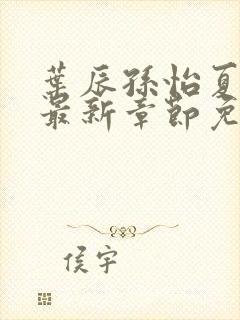 葉辰孫怡夏
最新章節免
侯宇